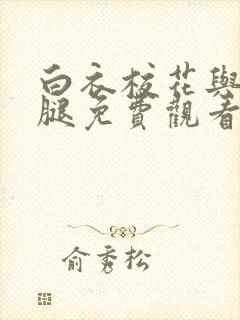 白衣校花與
腿免費觀看
俞秀松